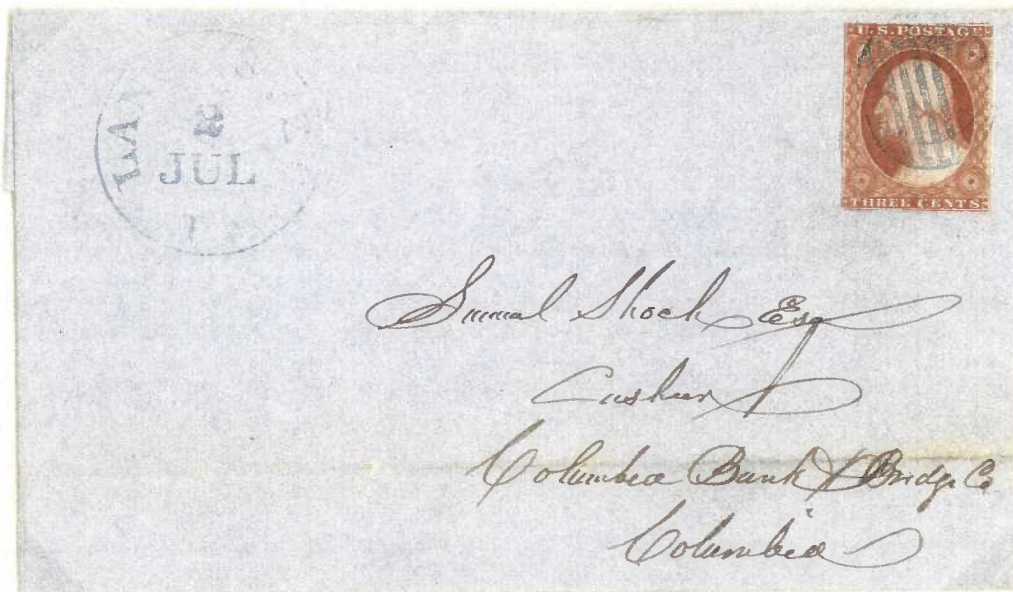 U.S. POSTAGE
THREE CENTS
LAN
2
JUL
Samuel Shock Esq
Cashier
Columbia Bank & Bridge Co
Columbia